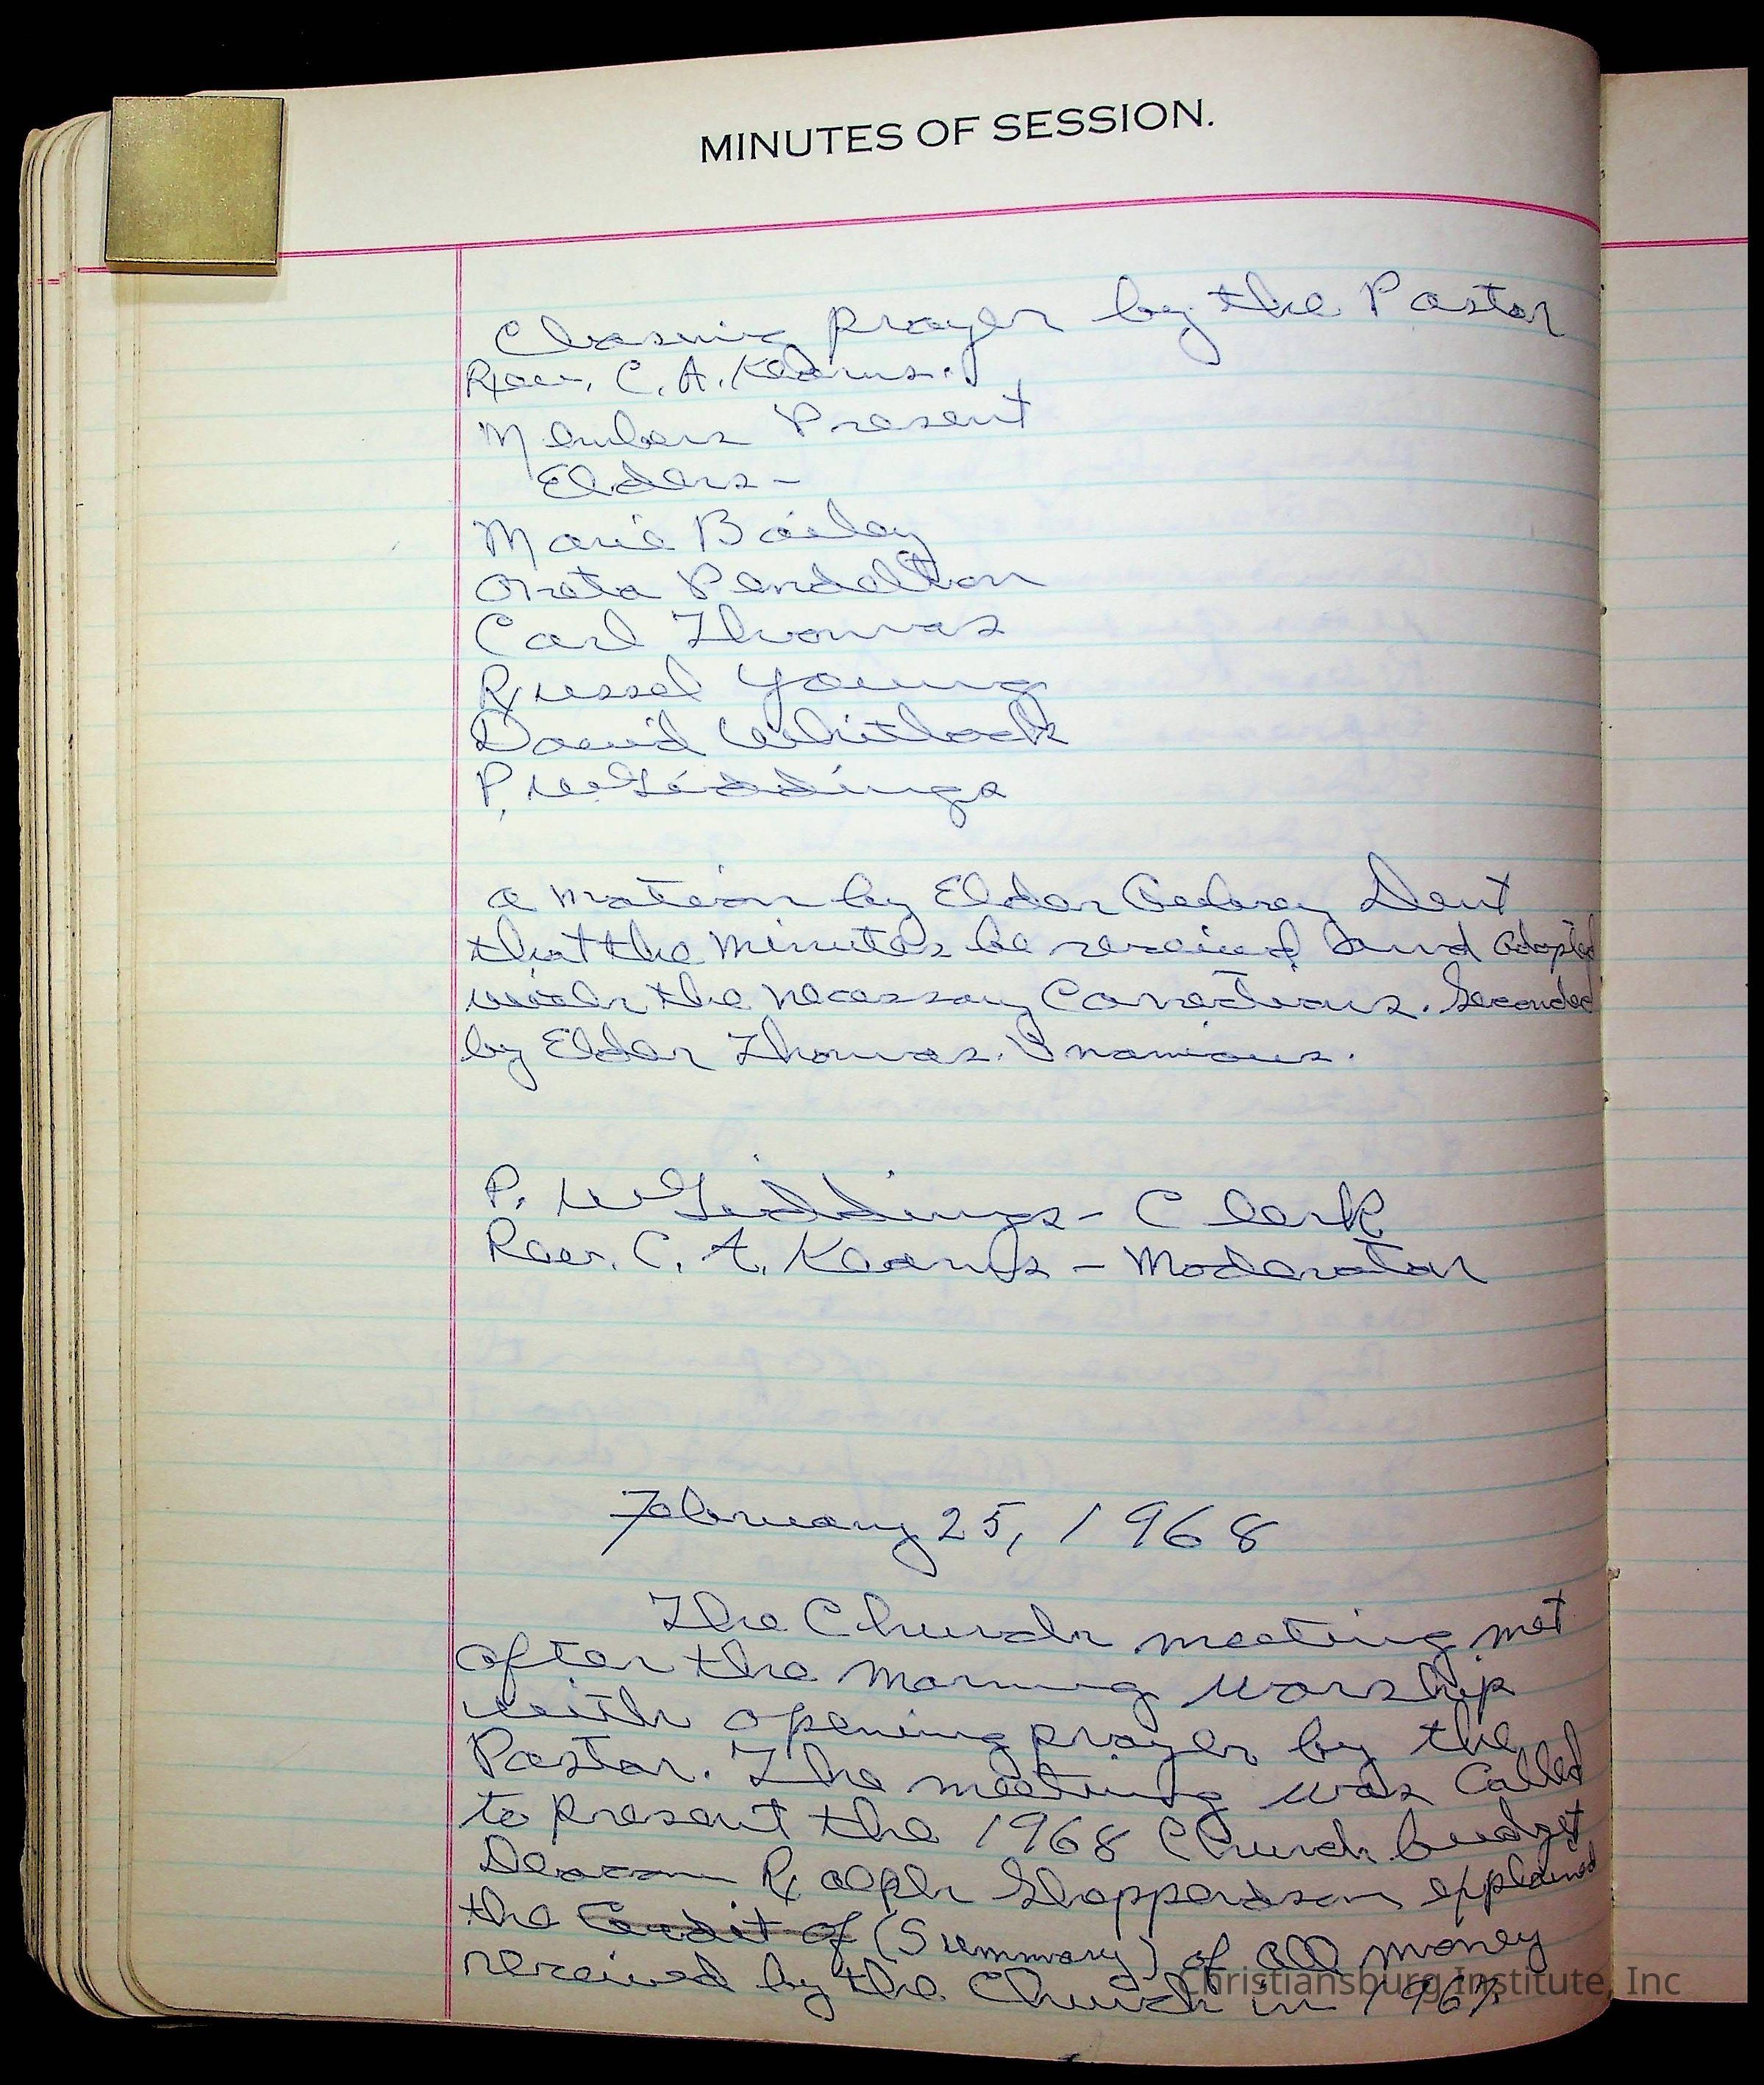 MINUTES OF SESSION.
Closing prayer by the Pastor
Rev. C. A. Kearns.
Members Present
Elders-
Marie Bailey
Oreta Pendelton
Carl Thomas
Russel Young
David Whitlock
P. W Giddings
a motion by Elder Aubrey Dent
that the minutes be received and adopted
with the necessary Corrections. Seconded
by Elder Thomas. Unamious.
P. W Giddings - Clerk
Rev. C. A. Kearns - Moderator
February 25, 1968
The Church meeting met
after the morning worship
with opening prayer by the
Pastor. The meeting was Called
to present the 1968 Church budget
Deacon Ralph Shopperdson explained
the Audit of (Summary) of all money
received by the Church in 1967.
Christiansburg Institute, Inc